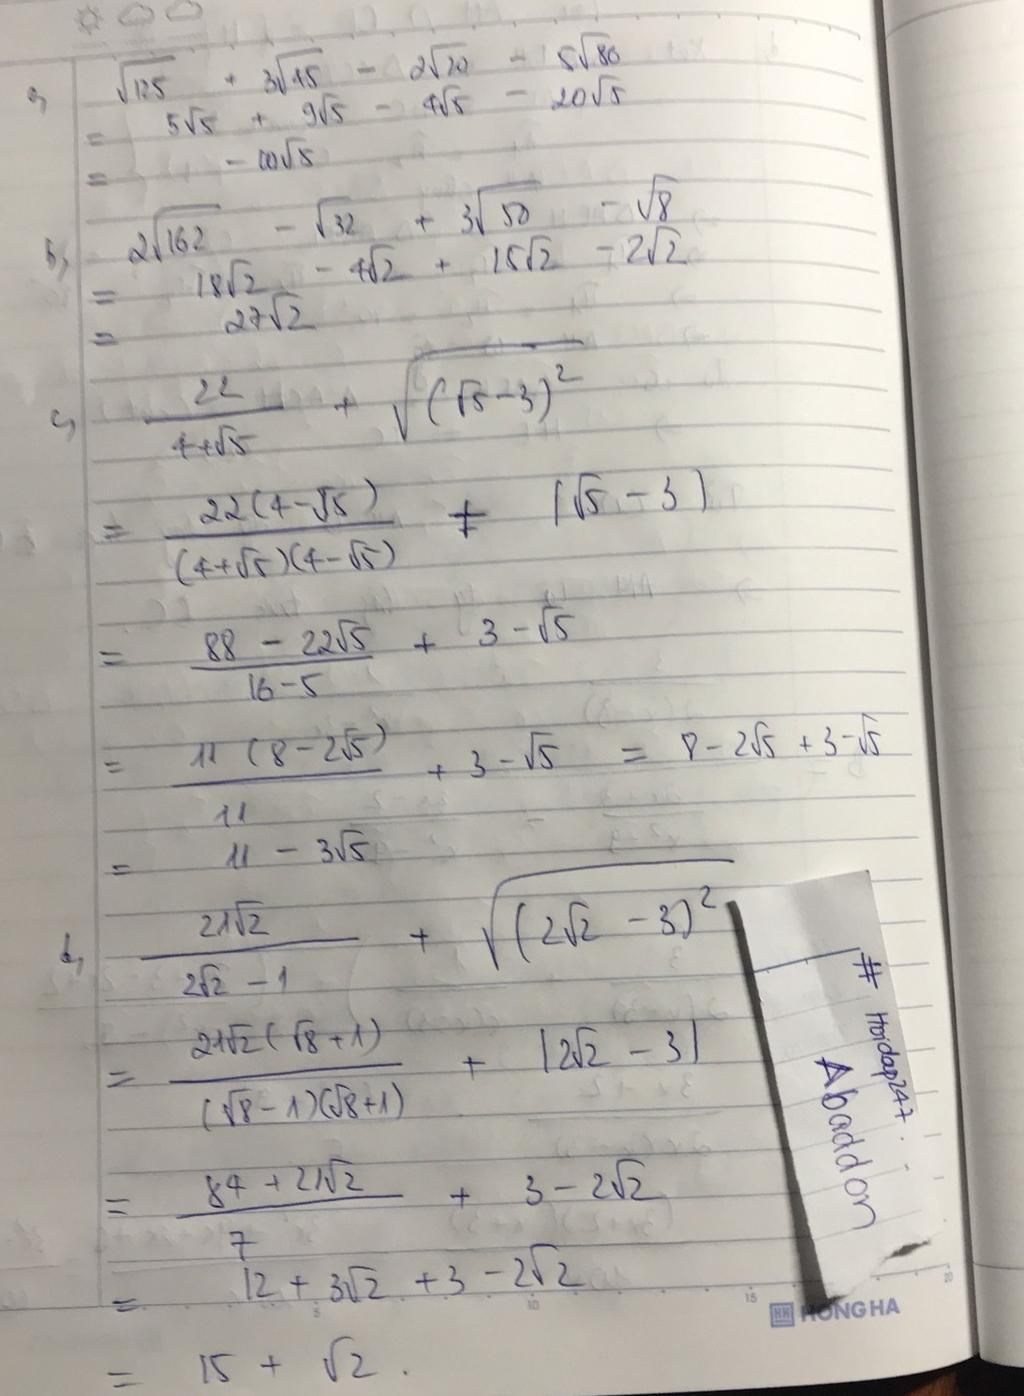 a, √125 + 3√45 - 2√20 - 5√80
= 5√5 + 9√5 - 4√5 - 20√5
= -10√5
b, 2√162 - √32 + 3√50 - √8
= 18√2 - 4√2 + 15√2 - 2√2
= 27√2
c, 22/(4+√5) + √((√5-3)²)
= 22(4-√5)/((4+√5)(4-√5)) + |√5 - 3|
= (88 - 22√5)/(16-5) + 3 - √5
= 11(8-2√5)/11 + 3 - √5 = 8 - 2√5 + 3 - √5
= 11 - 3√5
d, 21√2/(2√2 - 1) + √((2√2 - 3)²)
= 21√2(√8+1)/((√8-1)(√8+1)) + |2√2 - 3|
= (84 + 21√2)/7 + 3 - 2√2
= 12 + 3√2 + 3 - 2√2
= 15 + √2.
# Hoidap247.
Abaddon
5 10 15 20
HH HONG HA